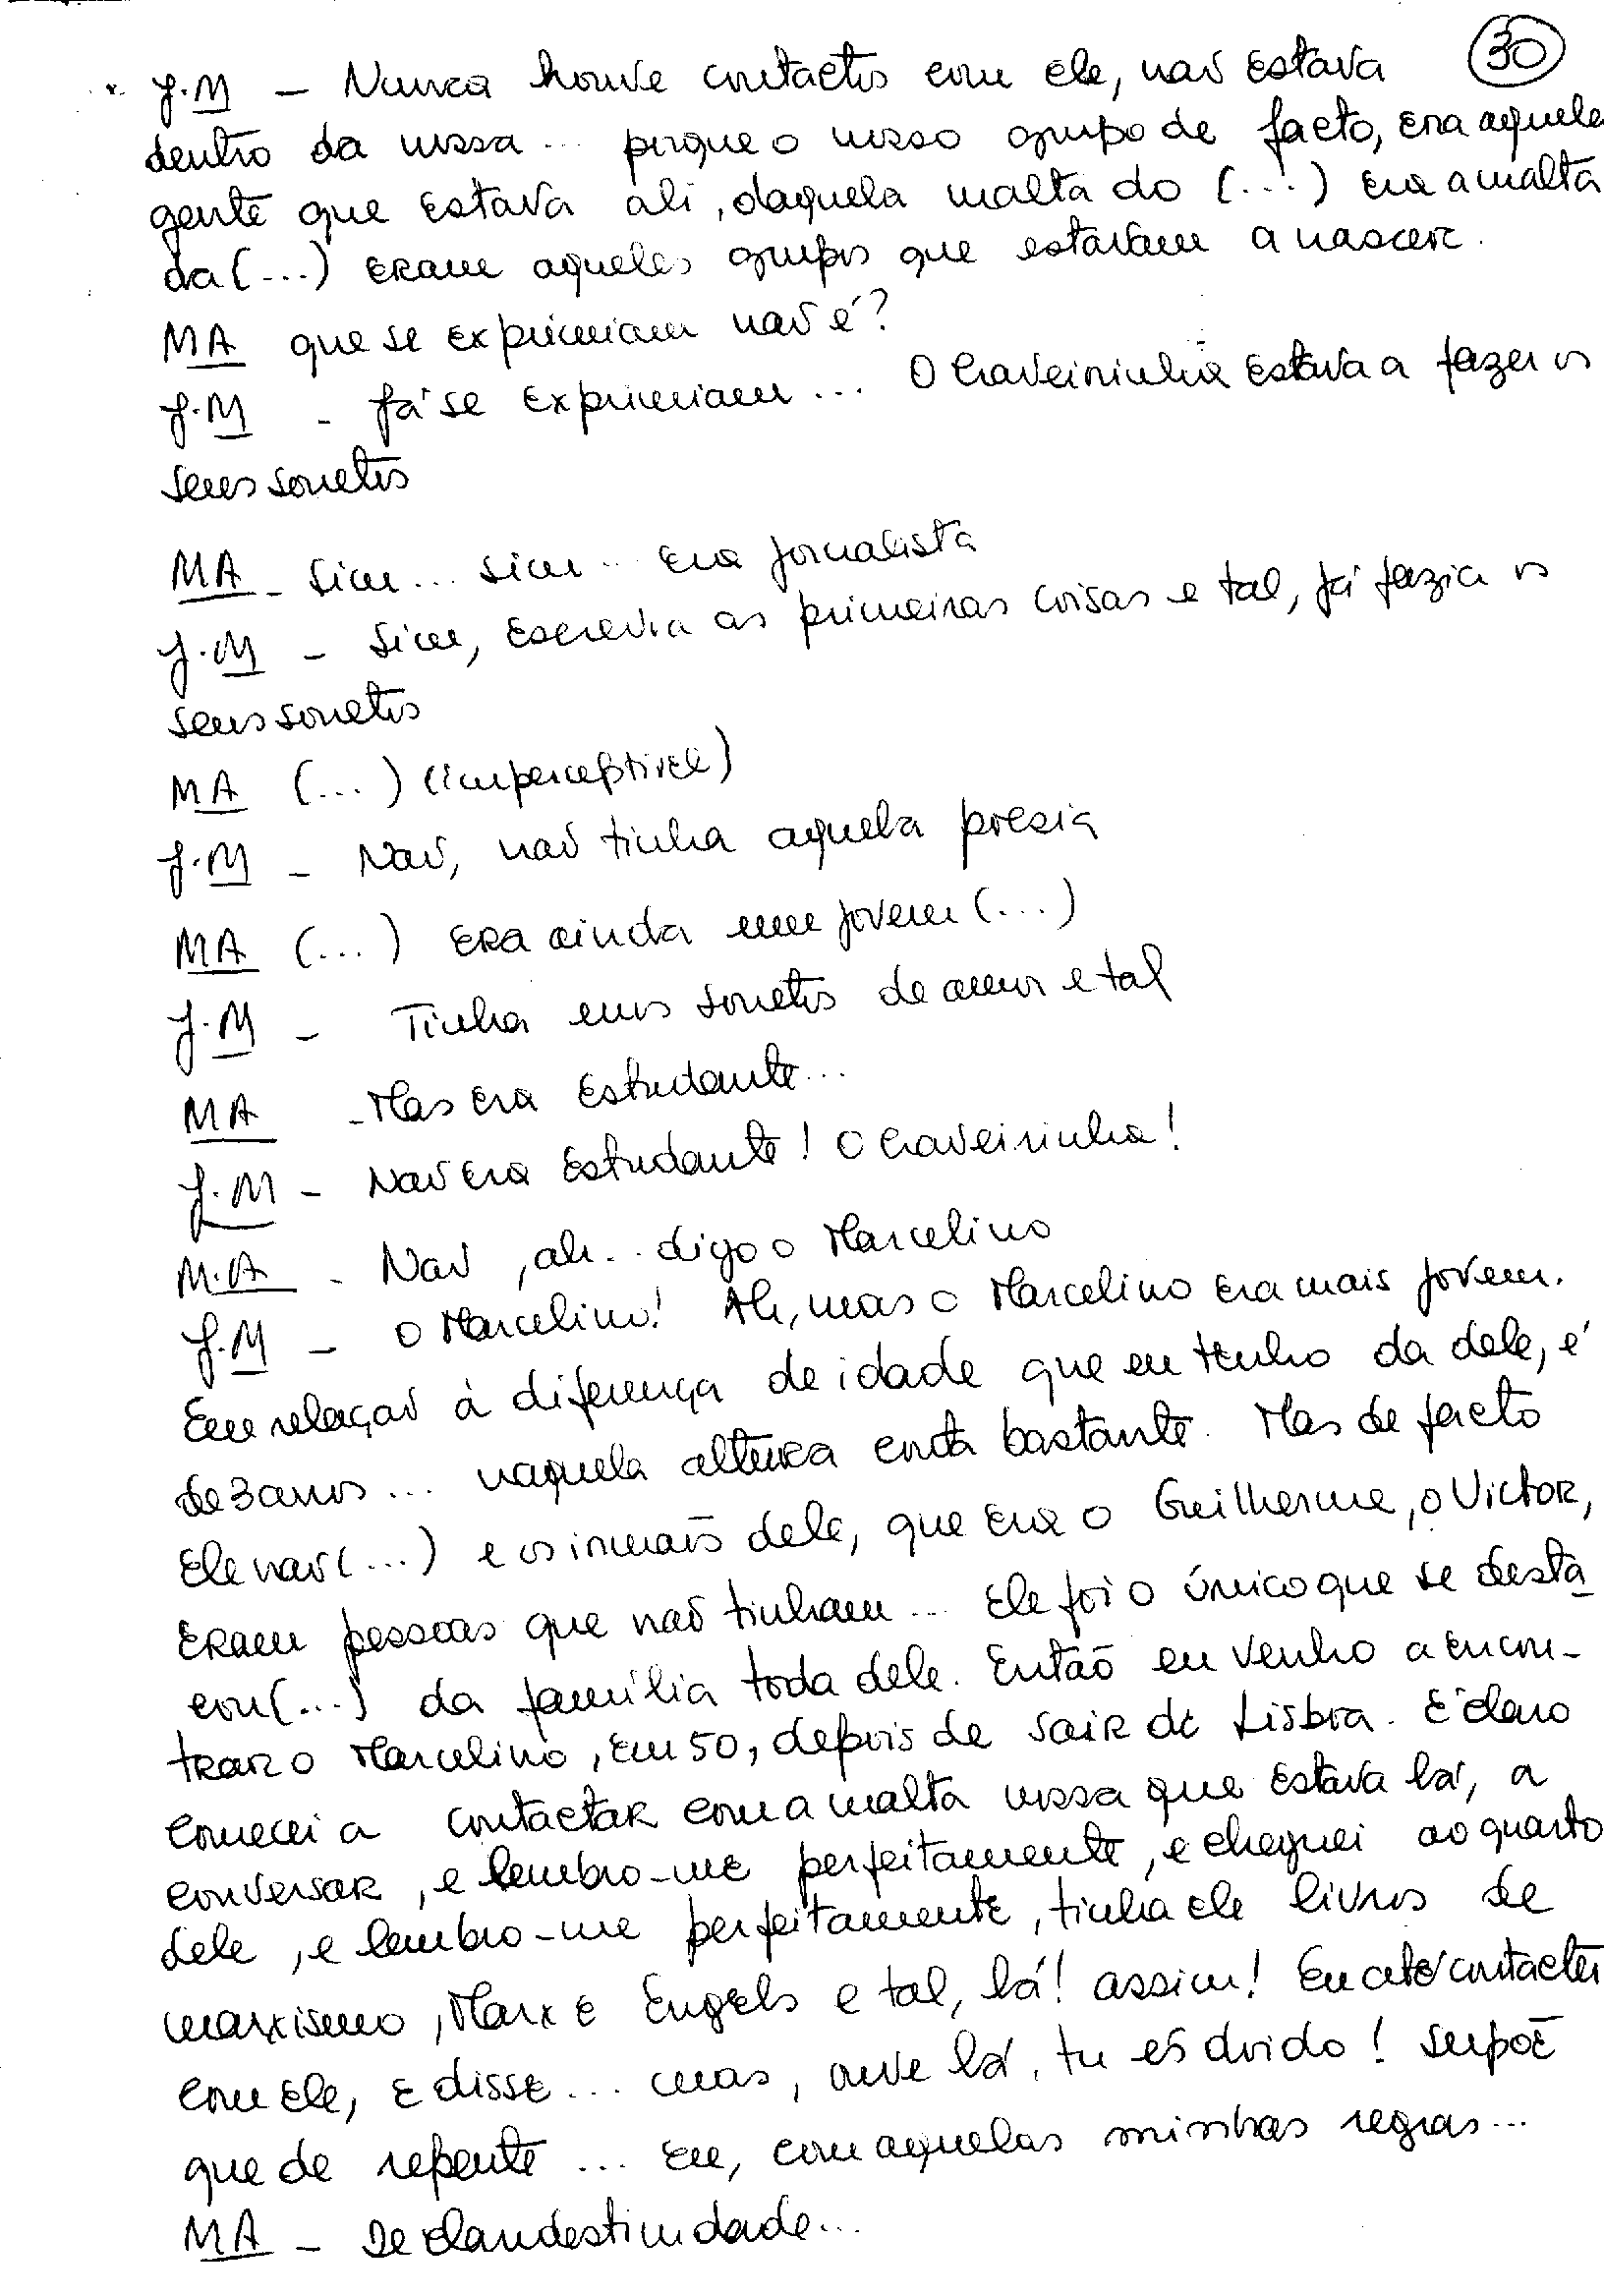 30
J.M — Nunca houve contactos com ele, não estava
dentro da nossa... porque o nosso grupo de facto, era aquela
gente que estava ali, daquela malta do (...) era a malta
da (...) eram aqueles grupos que estavam a nascer.
MA que se exprimiam não é?
J.M - Já se exprimiam... O Craveirinha estava a fazer os
seus sonetos
MA - Sim... sim... era jornalista
J.M - Sim, escrevia as primeiras coisas e tal, já fazia os
seus sonetos
MA (...) (imperceptível)
J.M - Não, não tinha aquela poesia
MA (...) era ainda um jovem (...)
J.M - Tinha uns sonetos de amor e tal
MA - Mas era estudante...
J.M - Não era estudante! O Craveirinha!
M.A - Não, ah... digo o Marcelino
J.M - O Marcelino! Ah, mas o Marcelino era mais jovem.
Em relação à diferença de idade que eu tenho da dele, é
de 3 anos... naquela altura conta bastante. Mas de facto
ele não (...) e os irmãos dele, que era o Guilherme, o Victor,
eram pessoas que não tinham... Ele foi o único que se desta
cou (...) da família toda dele. Então eu venho a encon-
trar o Marcelino, em 50, depois de sair de Lisboa. É claro
comecei a contactar com a malta nossa que estava lá, a
conversar, e lembro-me perfeitamente, e cheguei ao quarto
dele, e lembro-me perfeitamente, tinha ele livros de
marxismo, Marx e Engels e tal, lá! assim! Eu até contactei
com ele, e disse... mas, ouve lá, tu és doido! Supõe
que de repente... Eu, com aquelas minhas regras...
MA - De clandestinidade...